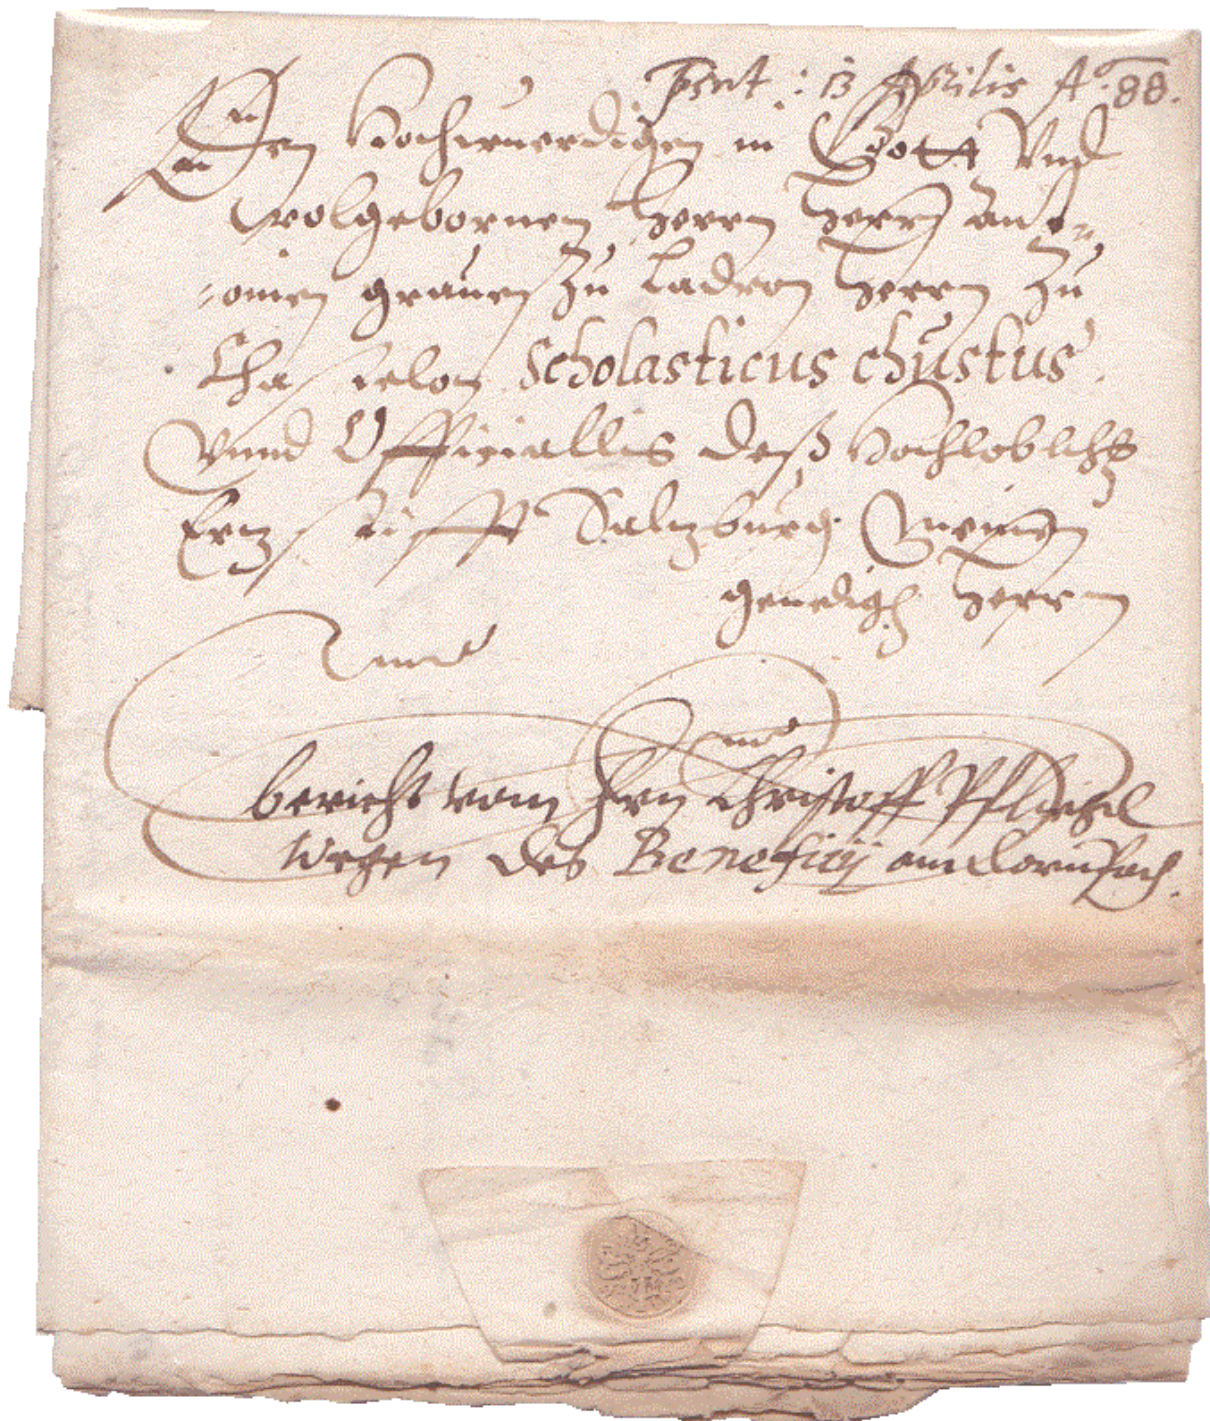 Prnt: 13 Aprilis A° 88.
Den Hochwuerdigen in Gott Vnd
wolgebornen herrn herrn Ant=
=onien grauen zu Ladron herrn zu
Chastelon Scholasticus
Vnnd Officiallis deß Hochloblich
Ertzstifft Saltzburg Meinen
genedig herrn
bericht vom hern Christoff
wegen des Beneficij am